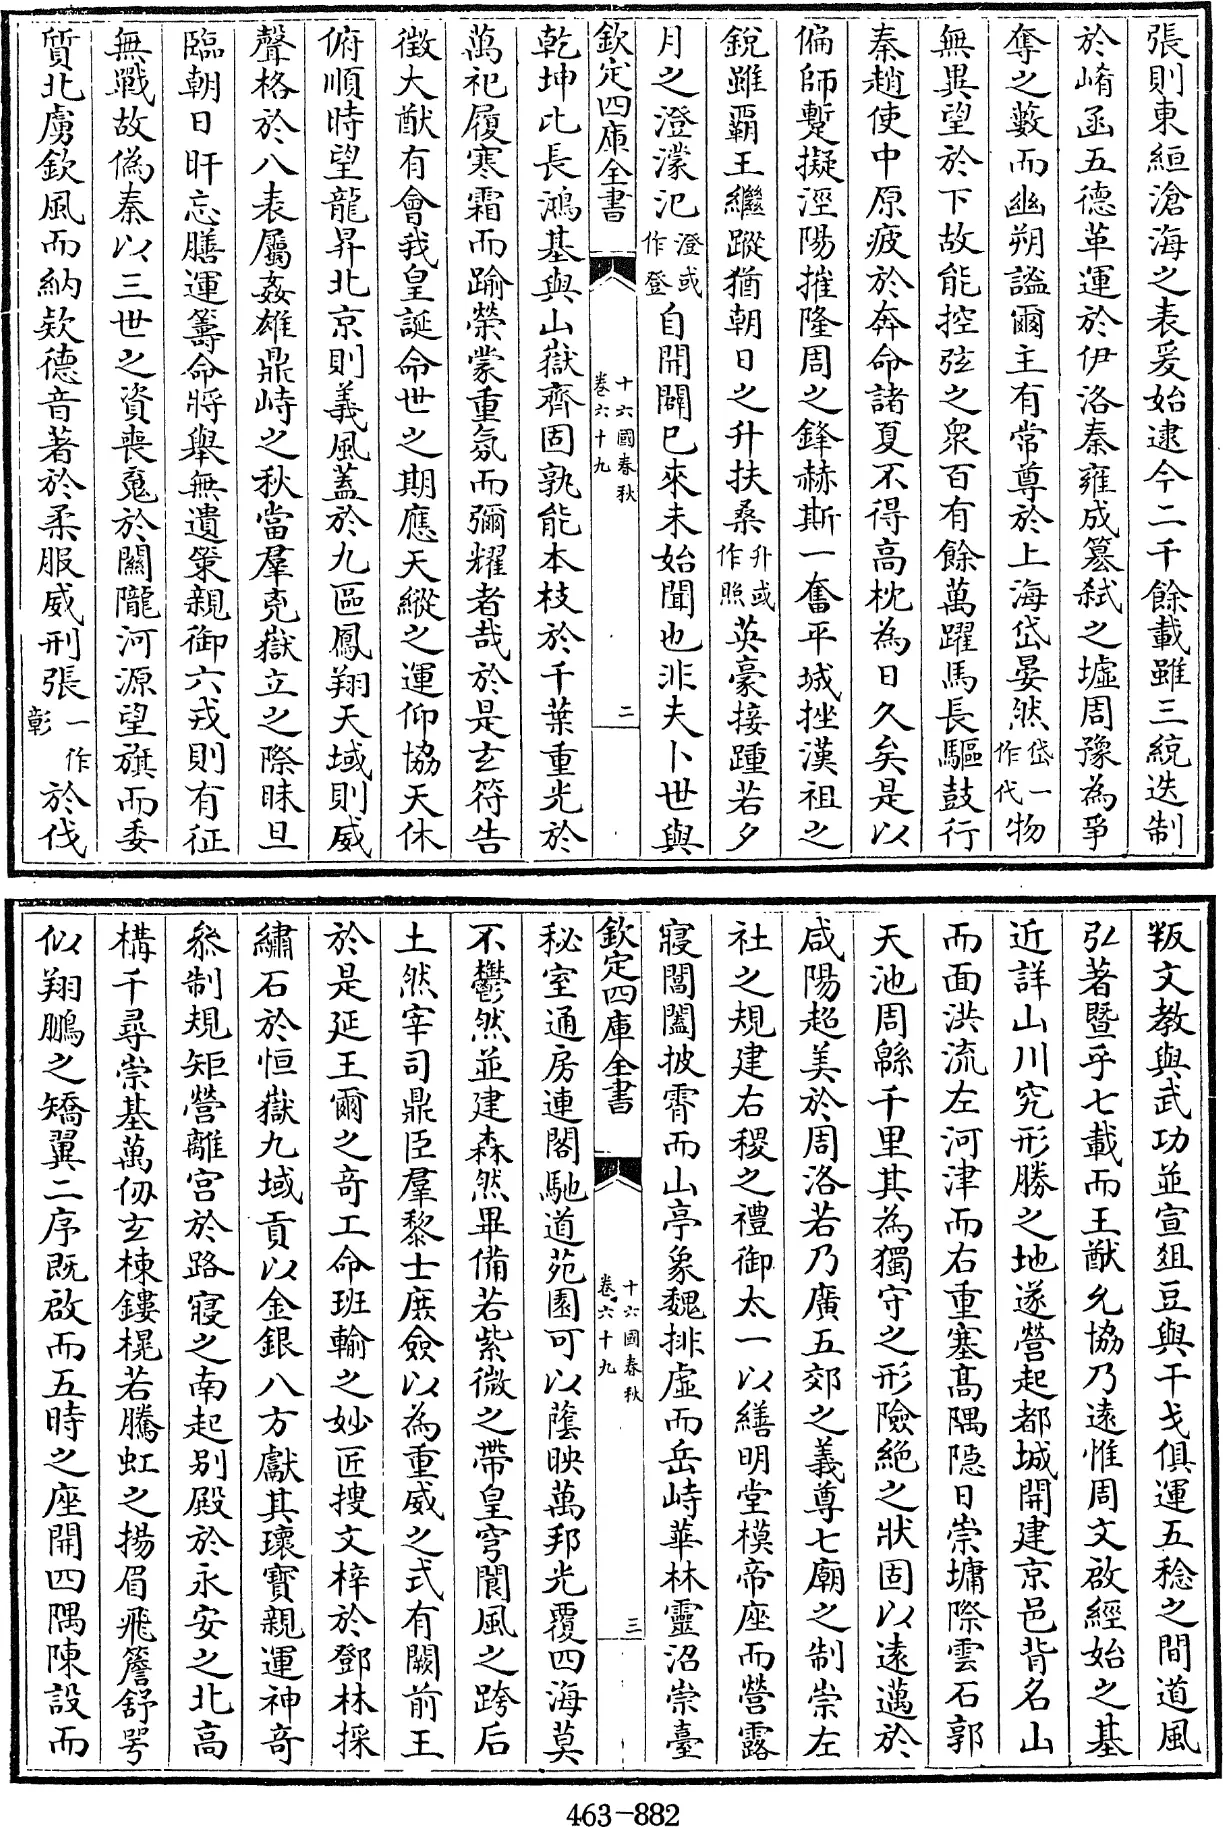 張則東絙滄海之表爰始逮今二千餘載雖三統迭制
於崤函五德革運於伊洛秦雍成簒弑之墟周豫為爭
奪之藪而幽朔謐爾主有常尊於上海岱晏然岱一作代物
無異望於下故能控弦之衆百有餘萬躍馬長驅鼓行
秦趙使中原疲於奔命諸夏不得高枕為日久矣是以
偏師蹔擬涇陽摧隆周之鋒赫斯一奮平城挫漢祖之
銳雖霸王繼蹤猶朝日之升扶桑升或作照英豪接踵若夕
月之澄濛汜澄或作登自開闢已來未始聞也非夫卜世與
欽定四庫全書
十六國春秋
卷六十九
二
乾坤比長鴻基與山嶽齊固孰能本枝於千葉重光於
萬祀履寒霜而踰榮蒙重氛而彌耀者哉於是玄符告
徴大猷有會我皇誕命世之期應天縱之運仰協天休
俯順時望龍昇北京則義風蓋於九區鳳翔天域則威
聲格於八表屬姦雄鼎峙之秋當羣兇嶽立之際昧旦
臨朝日旰忘膳運籌命將舉無遺策親御六戎則有征
無戰故偽秦以三世之資喪䰟於關隴河源望旗而委
質北虜欽風而納欵德音著於柔服威刑張一作彰於伐
叛文教與武功並宣俎豆與干戈俱運五稔之間道風
弘著暨乎七載而王猷允協乃遠惟周文啟經始之基
近詳山川究形勝之地遂營起都城開建京邑背名山
而面洪流左河津而右重塞髙隅隠日崇墉際雲石郭
天池周緜千里其為獨守之形險絶之狀固以遠邁於
咸陽超美於周洛若乃廣五郊之義尊七廟之制崇左
社之規建右稷之禮御太一以繕明堂模帝座而營露
寢閶闔披霄而山亭象魏排虛而岳峙華林靈沼崇臺
欽定四庫全書
十六國春秋
卷六十九
三
秘室通房連閣馳道苑園可以蔭映萬邦光覆四海莫
不鬱然並建森然畢備若紫微之帶皇穹閬風之跨后
土然宰司鼎臣羣黎士庶僉以為重威之式有闕前王
於是延王爾之奇工命班輸之妙匠搜文梓於鄧林採
繡石於恒嶽九域貢以金銀八方獻其瓌寳親運神竒
叅制規矩營離宮於路寢之南起别殿於永安之北高
構千尋崇基萬仞玄棟鏤榥若騰虹之揚眉飛簷舒咢
似翔鵬之矯翼二序既啟而五時之座開四隅陳設而
463-882